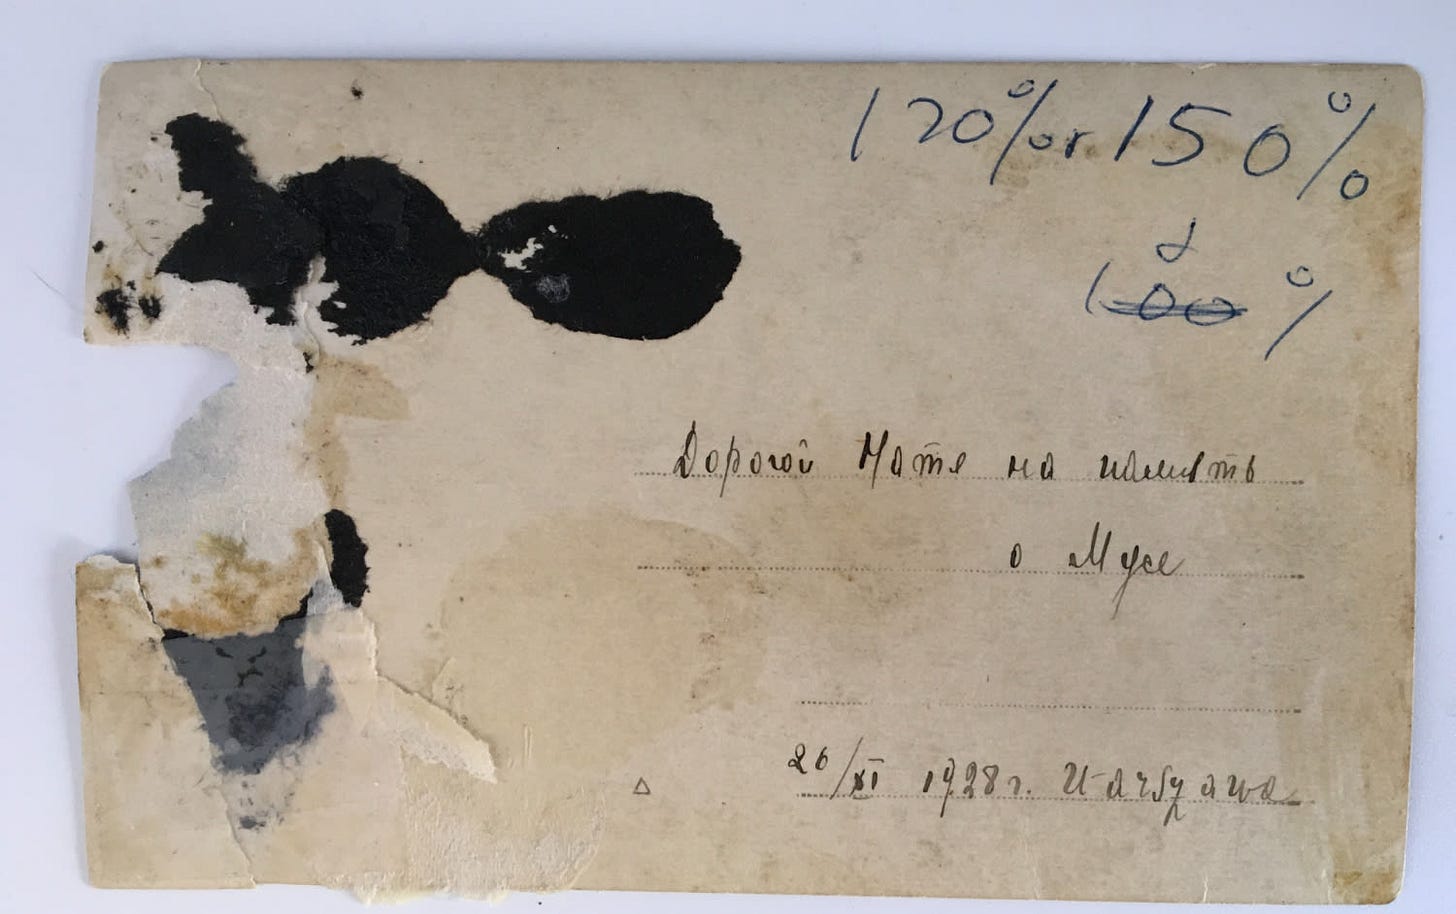 120% or 150%
100%
Дорогой Нате на память
о Мусе
26/XI 1928 г. Warszawa